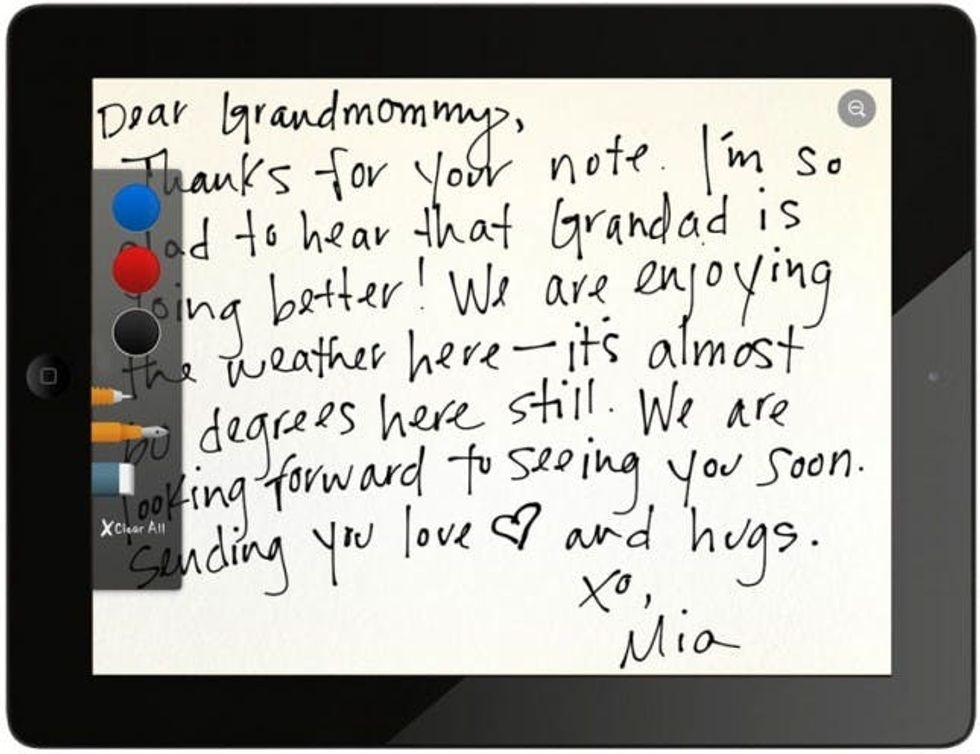 Dear Grandmommy,
Thanks for your note. I'm so
glad to hear that Grandad is
going better! We are enjoying
the weather here — it's almost
60 degrees here still. We are
looking forward to seeing you soon.
X Clear All
Sending you love ♡ and hugs.
xo,
Mia